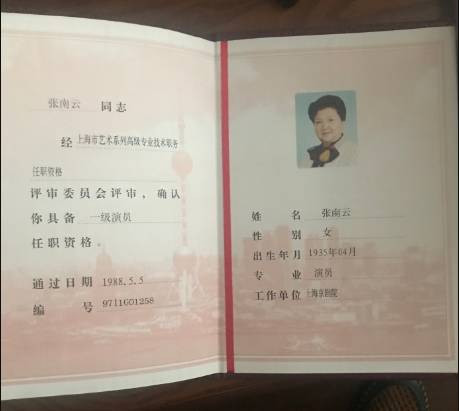 张南云 同志
经 上海市艺术系列高级专业技术职务
任职资格
评审委员会评审，确认
你具备 一级演员
任职资格。
通过日期 1988.5.5
编 号 9711601258
姓 名 张南云
性 别 女
出生年月 1935年04月
专 业 演员
工作单位 上海京剧院